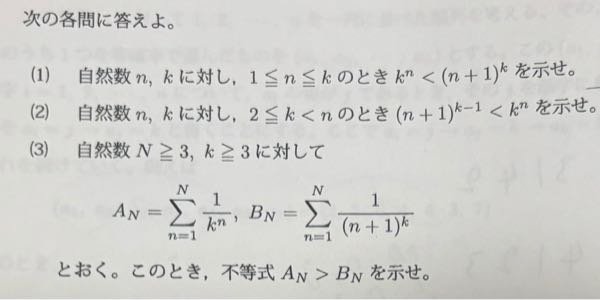 次の各問に答えよ。
(1) 自然数 n, k に対し，1 ≦ n ≦ k のとき kⁿ < (n + 1)ᵏ を示せ。
(2) 自然数 n, k に対し，2 ≦ k < n のとき (n + 1)ᵏ⁻¹ < kⁿ を示せ。
(3) 自然数 N ≧ 3, k ≧ 3 に対して
A_N = ∑_{n=1}^{N} 1/kⁿ, B_N = ∑_{n=1}^{N} 1/(n + 1)ᵏ
とおく。このとき，不等式 A_N > B_N を示せ。